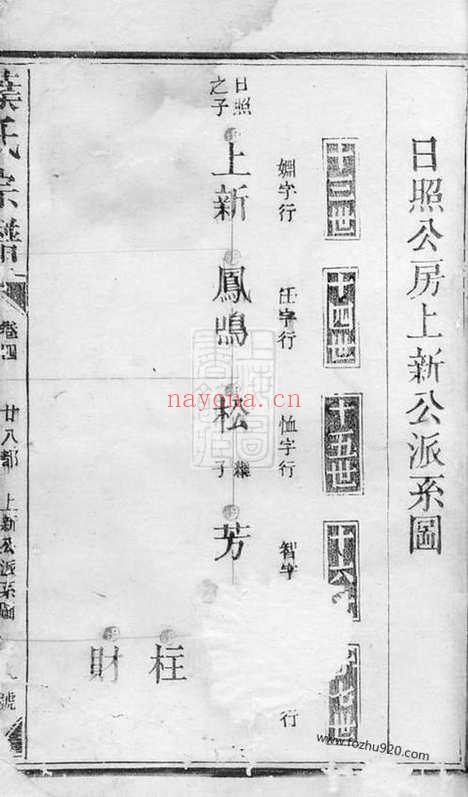 日照公房上新公派系圖
十三世
十四世
十五世
十六
七世
婣字行
任字行
恤字行
智字
行
日照
之子
上新
鳳鳴
松
子
芳
柱
財
葉氏宗譜
卷四
廿八都
上新公派系圖
號
上海圖
書館藏
nayona.cn
www.fozhu920.com